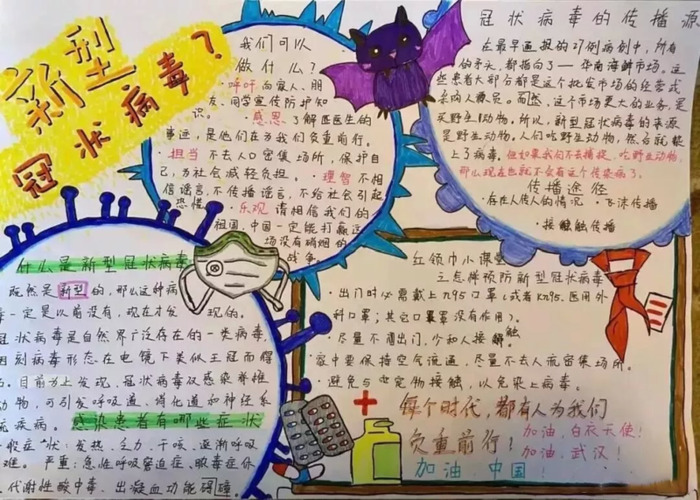 新型
冠状病毒？
我们可以
做什么？
·呼吁向家人、朋
友、同学宣传防护知
识。 ·感恩了解医医生的
事迹，是他们在为我们负重前行。
·担当 不去人口密集场所，保护自
己，为社会减轻负担。·理智不相
信谣言，不传播谣言，不给社会引起
恐慌。·乐观 请相信我们的
祖国，中国一定能打赢这
场没有硝烟的
战争
冠状病毒的传播源
在最早通报的27例病例中，所有
的矛头，都指向了——华南海鲜市场。这
些患者大部分都是这个批发市场的经营或
采购人员。而然，这个市场更大的业务，是
买野生动物。所以，新型冠状病毒的来源
是野生动物，人们吃野生动物，然后就
上了病毒。但如果我们不去捕捉、吃野生动物，
那么现在也就不会有这个传染病了。
传播途径
·存在人传人的情况 ·飞沫传播
·接触传播
什么是新型冠状病毒
既然是新型的，那么这种病
毒一定是以前没有，现在才发现的。
冠状病毒是自然界广泛存在的一类病毒，
因刻病毒形态在电镜下类似王冠而得
名。目前为止发现，冠状病毒仅感染脊椎
动物，可引发呼吸道、消化道和神经系
统疾病。感染患者有哪些症状
一般症状：发热、乏力、干咳、逐渐呼吸
困难。严重：急性呼吸窘迫症、脓毒症休
、代谢性酸中毒、出凝血功能障碍
红领巾小课堂
之怎样预防新型冠状病毒
·出门时必需戴上n95口罩（或者Kn95、医用外
科口罩；其它口罩没有作用）。
·尽量不要出门，少和人接触
·家中要保持空气流通，尽量不去人流密集场所。
·避免与宠物接触，以免染上病毒。
每个时代，都有人为我们
负重前行？
加油，白衣天使！
加油，武汉！
加油 中国！